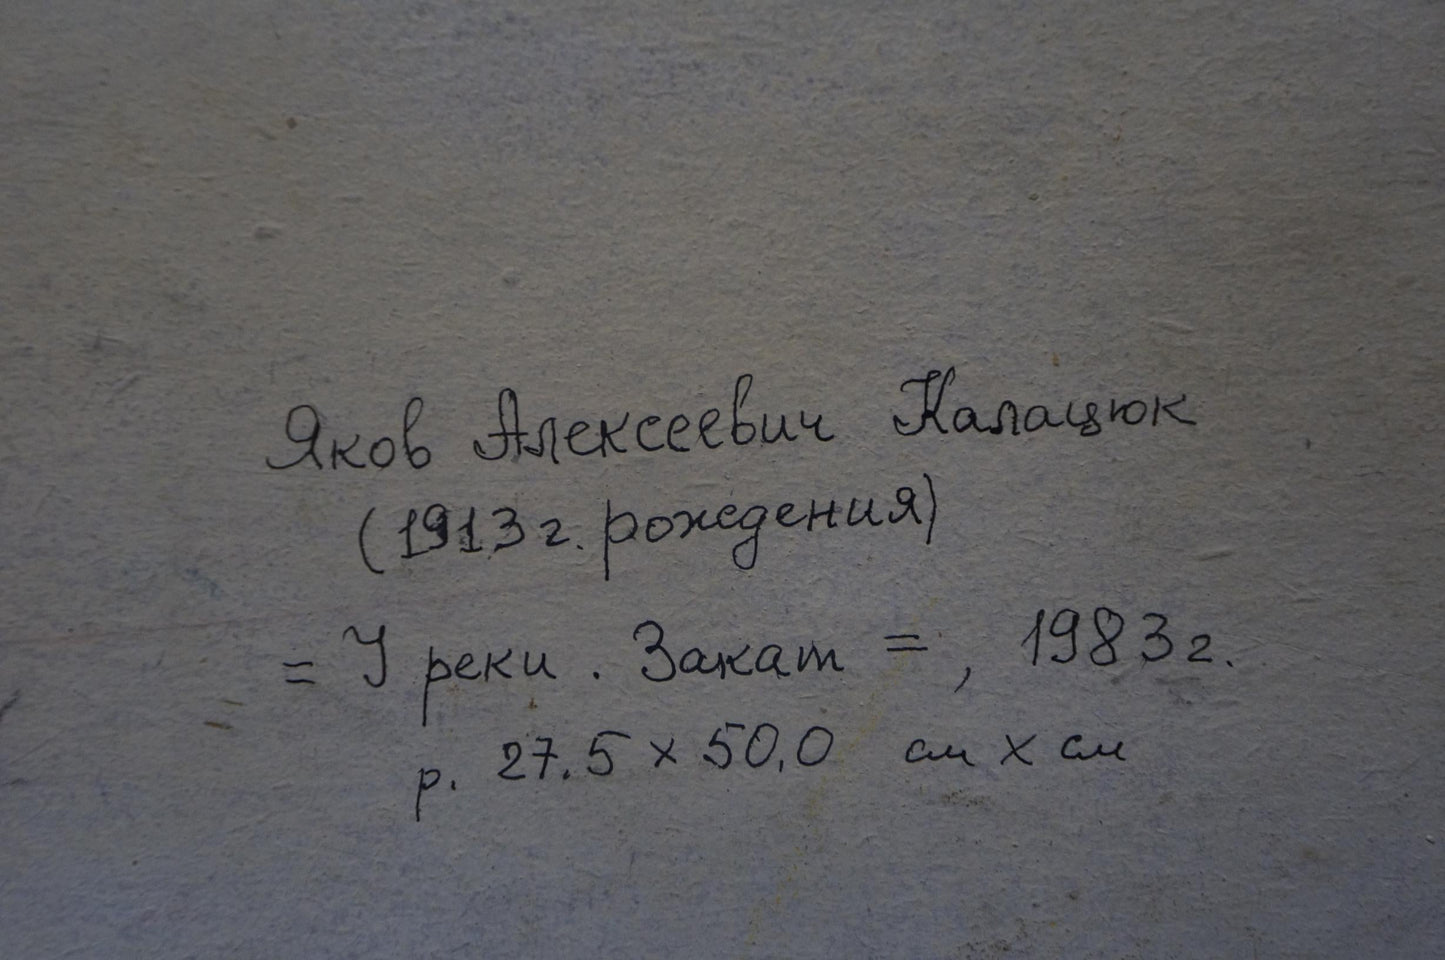 Яков Алексеевич Калацюк
(1913 г. рождения)
= У реки. Закат =, 1983 г.
р. 27.5 x 50,0 см x см